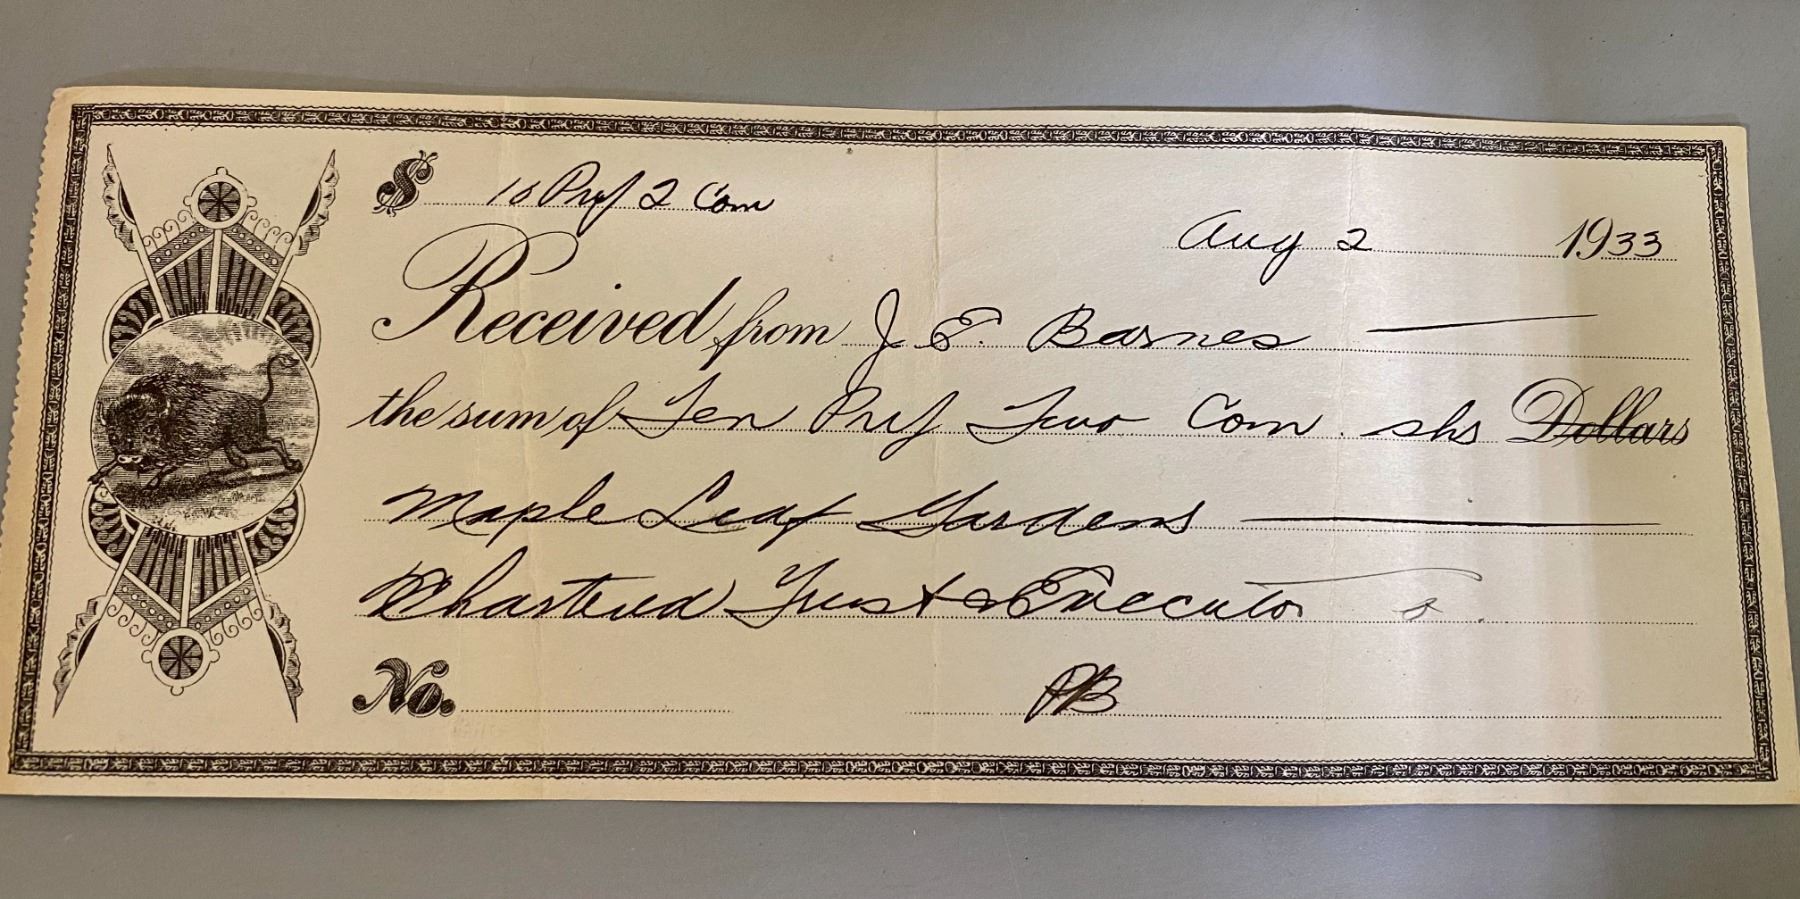 $ 10 Pref 2 Com
Aug 2 1933
Received from J. E. Barnes
the sum of Ten Pref Two Com shs Dollars
Maple Leaf Gardens
Chartered Trust & Executor
No.